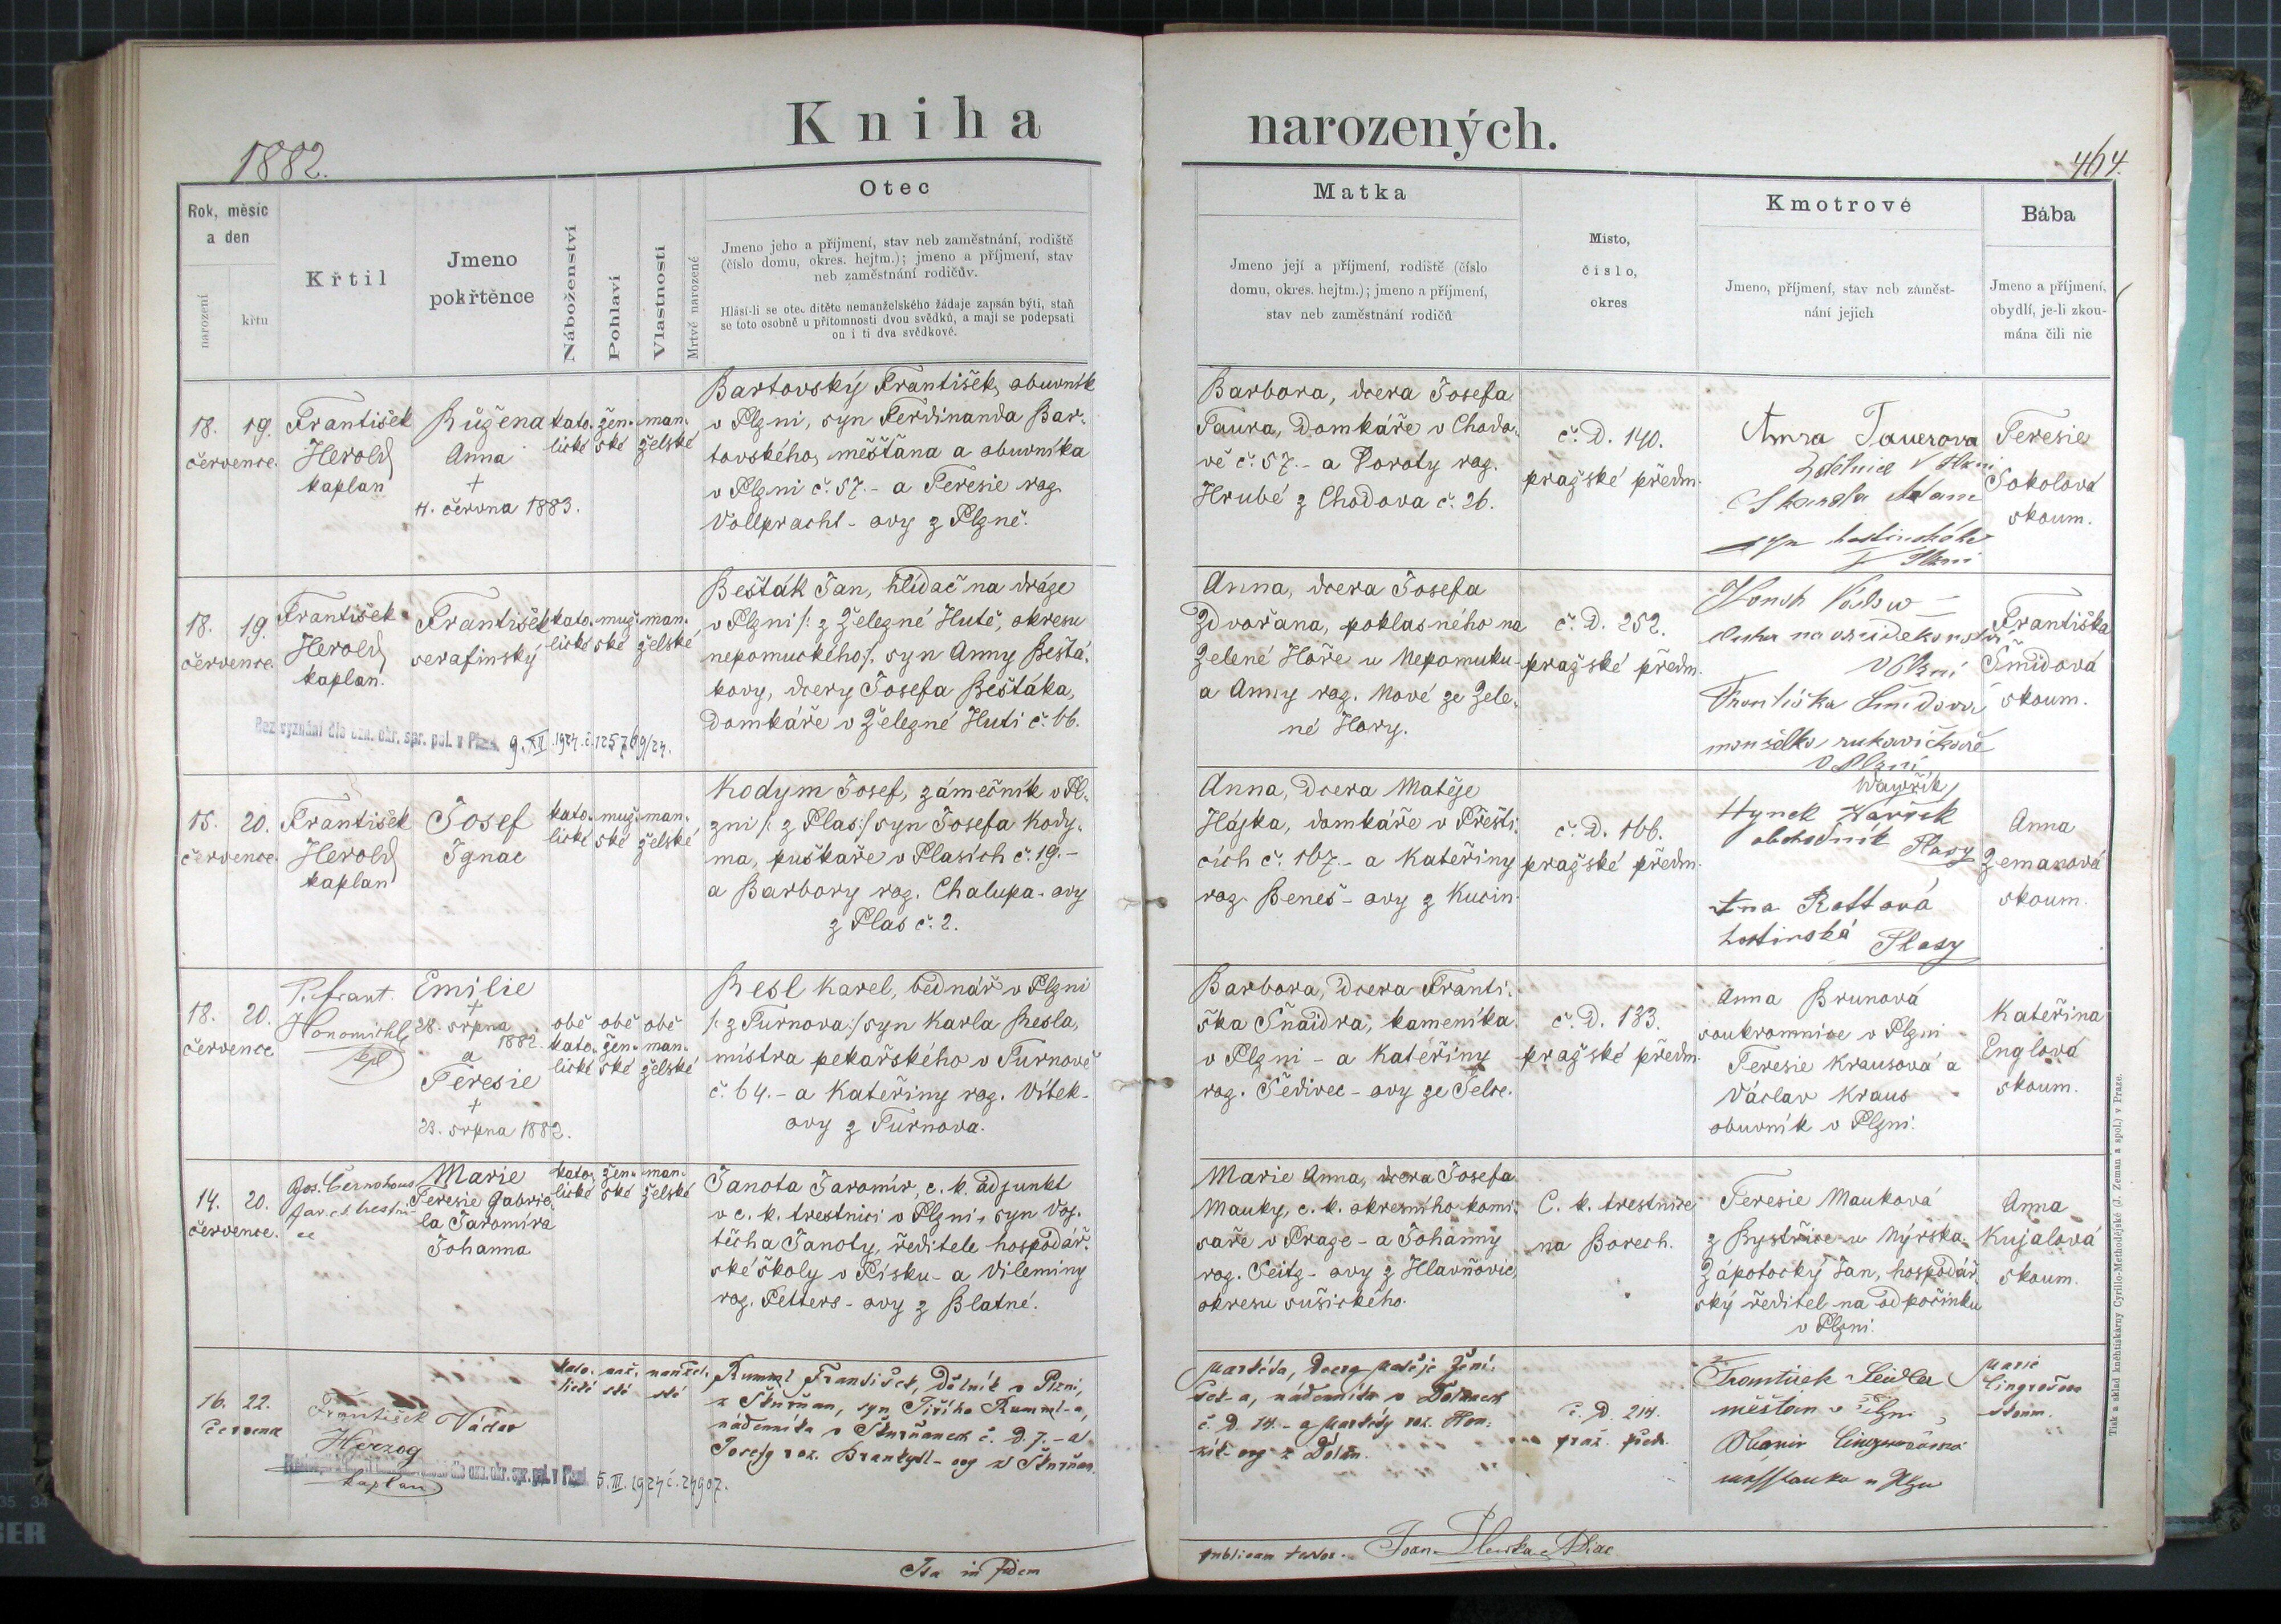 Kniha narozených.
1882.
464.
Rok, měsíc
a den
narození
křtu
Křtil
Jmeno
pokřtěnce
Náboženství
Pohlaví
Vlastnosti
Mrtvé narozené
Otec
Jmeno jeho a příjmení, stav neb zaměstnání, rodiště
(číslo domu, okres. hejtm.); jmeno a příjmení, stav
neb zaměstnání rodičův.
Hlásí-li se otec dítěte nemanželského žádaje zapsán býti, staň
se toto osobně u přítomnosti dvou svědků, a mají se podepsati
on i ti dva svědkové.
Matka
Jmeno její a příjmení, rodiště (číslo
domu, okres. hejtm.); jmeno a příjmení,
stav neb zaměstnání rodičů
Místo,
číslo,
okres
Kmotrové
Jmeno, příjmení, stav neb zaměst-
nání jejich
Bába
Jmeno a příjmení,
obydlí, je-li zkou-
mána čili nic
18. 19.
července.
František
Herold
kaplan
Růžena
Anna
+
4. června 1883.
kato-
lické
žen-
ské
man-
želské
Bartovský František, obuvník
v Plzni, syn Ferdinanda Bar-
tovského, měšťana a obuvníka
v Plzni č. 57. - a Teresie roz.
Vollpracht-ovy z Plzně.
Barbora, dcera Josefa
Taura, domkáře v Chodo-
vě č. 57. - a Doroty roz.
Hrubé z Chodova č. 26.
č. D. 140.
pražské předm.
Anna Tauerova
v Plzni
Adam
syn hostinského
v Plzni
Teresie
Sokolová
zkoum.
18. 19.
července.
František
Herold
kaplan.
František
serafinský
kato-
lické
muž-
ské
man-
želské
Bešták Jan, hlídač na dráze
v Plzni /: z Železné Hutě, okresu
nepomuckého :/, syn Anny Beštá-
kovy, dcery Josefa Beštáka,
domkáře v Železné Huti č. 66.
Bez vyznání dle ozn. okr. spr. pol. v Plzni 9. XII. 1924 č. 125769/24.
Anna, dcera Josefa
Zdvořana, poklasného na
Zelené Hoře u Nepomuku -
a Anny roz. Nové ze Zele-
né Hory.
č. D. 252.
pražské předm.
v Plzni
Františka Šmídová
manželka rukavičkáře
v Plzni
Františka
Šmídová
zkoum.
15. 20.
července.
František
Herold
kaplan
Josef
Ignac
kato-
lické
muž-
ské
man-
želské
Kodym Josef, zámečník v Pl-
zni /: z Plas :/ syn Josefa Kody-
ma, puškaře v Plasích č. 19. -
a Barbory roz. Chalupa-ovy
z Plas č. 2.
Anna, dcera Matěje
Hájka, domkáře v Přešti-
cích č. 167. - a Kateřiny
roz. Beneš-ovy z Kucin.
č. D. 166.
pražské předm.
Wavřík
Hynek
obchodník Plasy
Anna Rottová
hostinská Plasy
Anna
Zemanová
zkoum.
18. 20.
července
P. Frant.
Honomichl
kpl
Emilie
+
28. srpna
1882.
a
Teresie
+
23. srpna 1882.
obě
kato-
lické
obě
žen-
ské
obě
man-
želské
Resl Karel, bednář v Plzni
/: z Turnova :/ syn Karla Resla,
mistra pekařského v Turnově
č. 64. - a Kateřiny roz. Vítek-
ovy z Turnova.
Barbora, dcera Franti-
ška Šnaidra, kameníka
v Plzni - a Kateřiny
roz. Šedivec-ovy ze Selce.
č. D. 183.
pražské předm.
Anna Brunová
soukromnice v Plzni
Teresie Krausová a
Václav Kraus
obuvník v Plzni.
Kateřina
Englová
zkoum.
14. 20.
července.
Jos. Černohous
far. c. k. trestni-
ce
Marie
Teresie Gabrie-
la Jaromíra
Johanna
kato-
lické
žen-
ské
man-
želské
Janota Jaromír, c. k. adjunkt
v c. k. trestnici v Plzni, syn Voj-
těcha Janoty, ředitele hospodář-
ské školy v Písku - a Vileminy
roz. Petters-ovy z Blatné.
Marie Anna, dcera Josefa
Mauky, c. k. okresního komi-
saře v Praze - a Johanny
roz. Seitz-ovy z Hlavňovic,
okresu sušického.
C. k. trestnice
na Borech.
Teresie Mauková
z Bystřice u Nýrska.
Zápotocký Jan, hospodář-
ský ředitel na odpočinku
v Plzni.
Anna
Kujalová
zkoum.
16. 22.
července
František
Herzog
kaplan
Václav
kato-
lické
muž-
ské
manžel-
ské
Rumml František, dělník v Plzni,
z Štěnovan, syn Jiřího Rumml-a,
nádenníka
č. D. 7. - a
dle ozn. okr. spr. pol. v Plzni 5. III. 1924 č. 24907.
Markéta, dcera Matěje Žení-
šek-a, nádenníka v Dolanech
č. D. 14. - a Markéty roz.
z Dolan.
č. D. 214.
praž. předm.
František Seidler
měšťan v Plzni
Marie
zkoum.
Ita in fidem publicam testor.
Tisk a sklad kněhtiskárny Cyrillo-Methodějské (J. Zeman a spol.) v Praze.